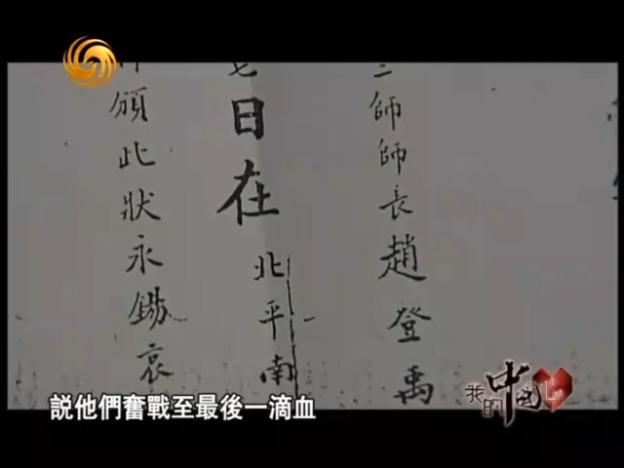 師師長趙登禹
七日在北平南
頒此狀永錫哀
説他們奮戰至最後一滴血
我的中国心